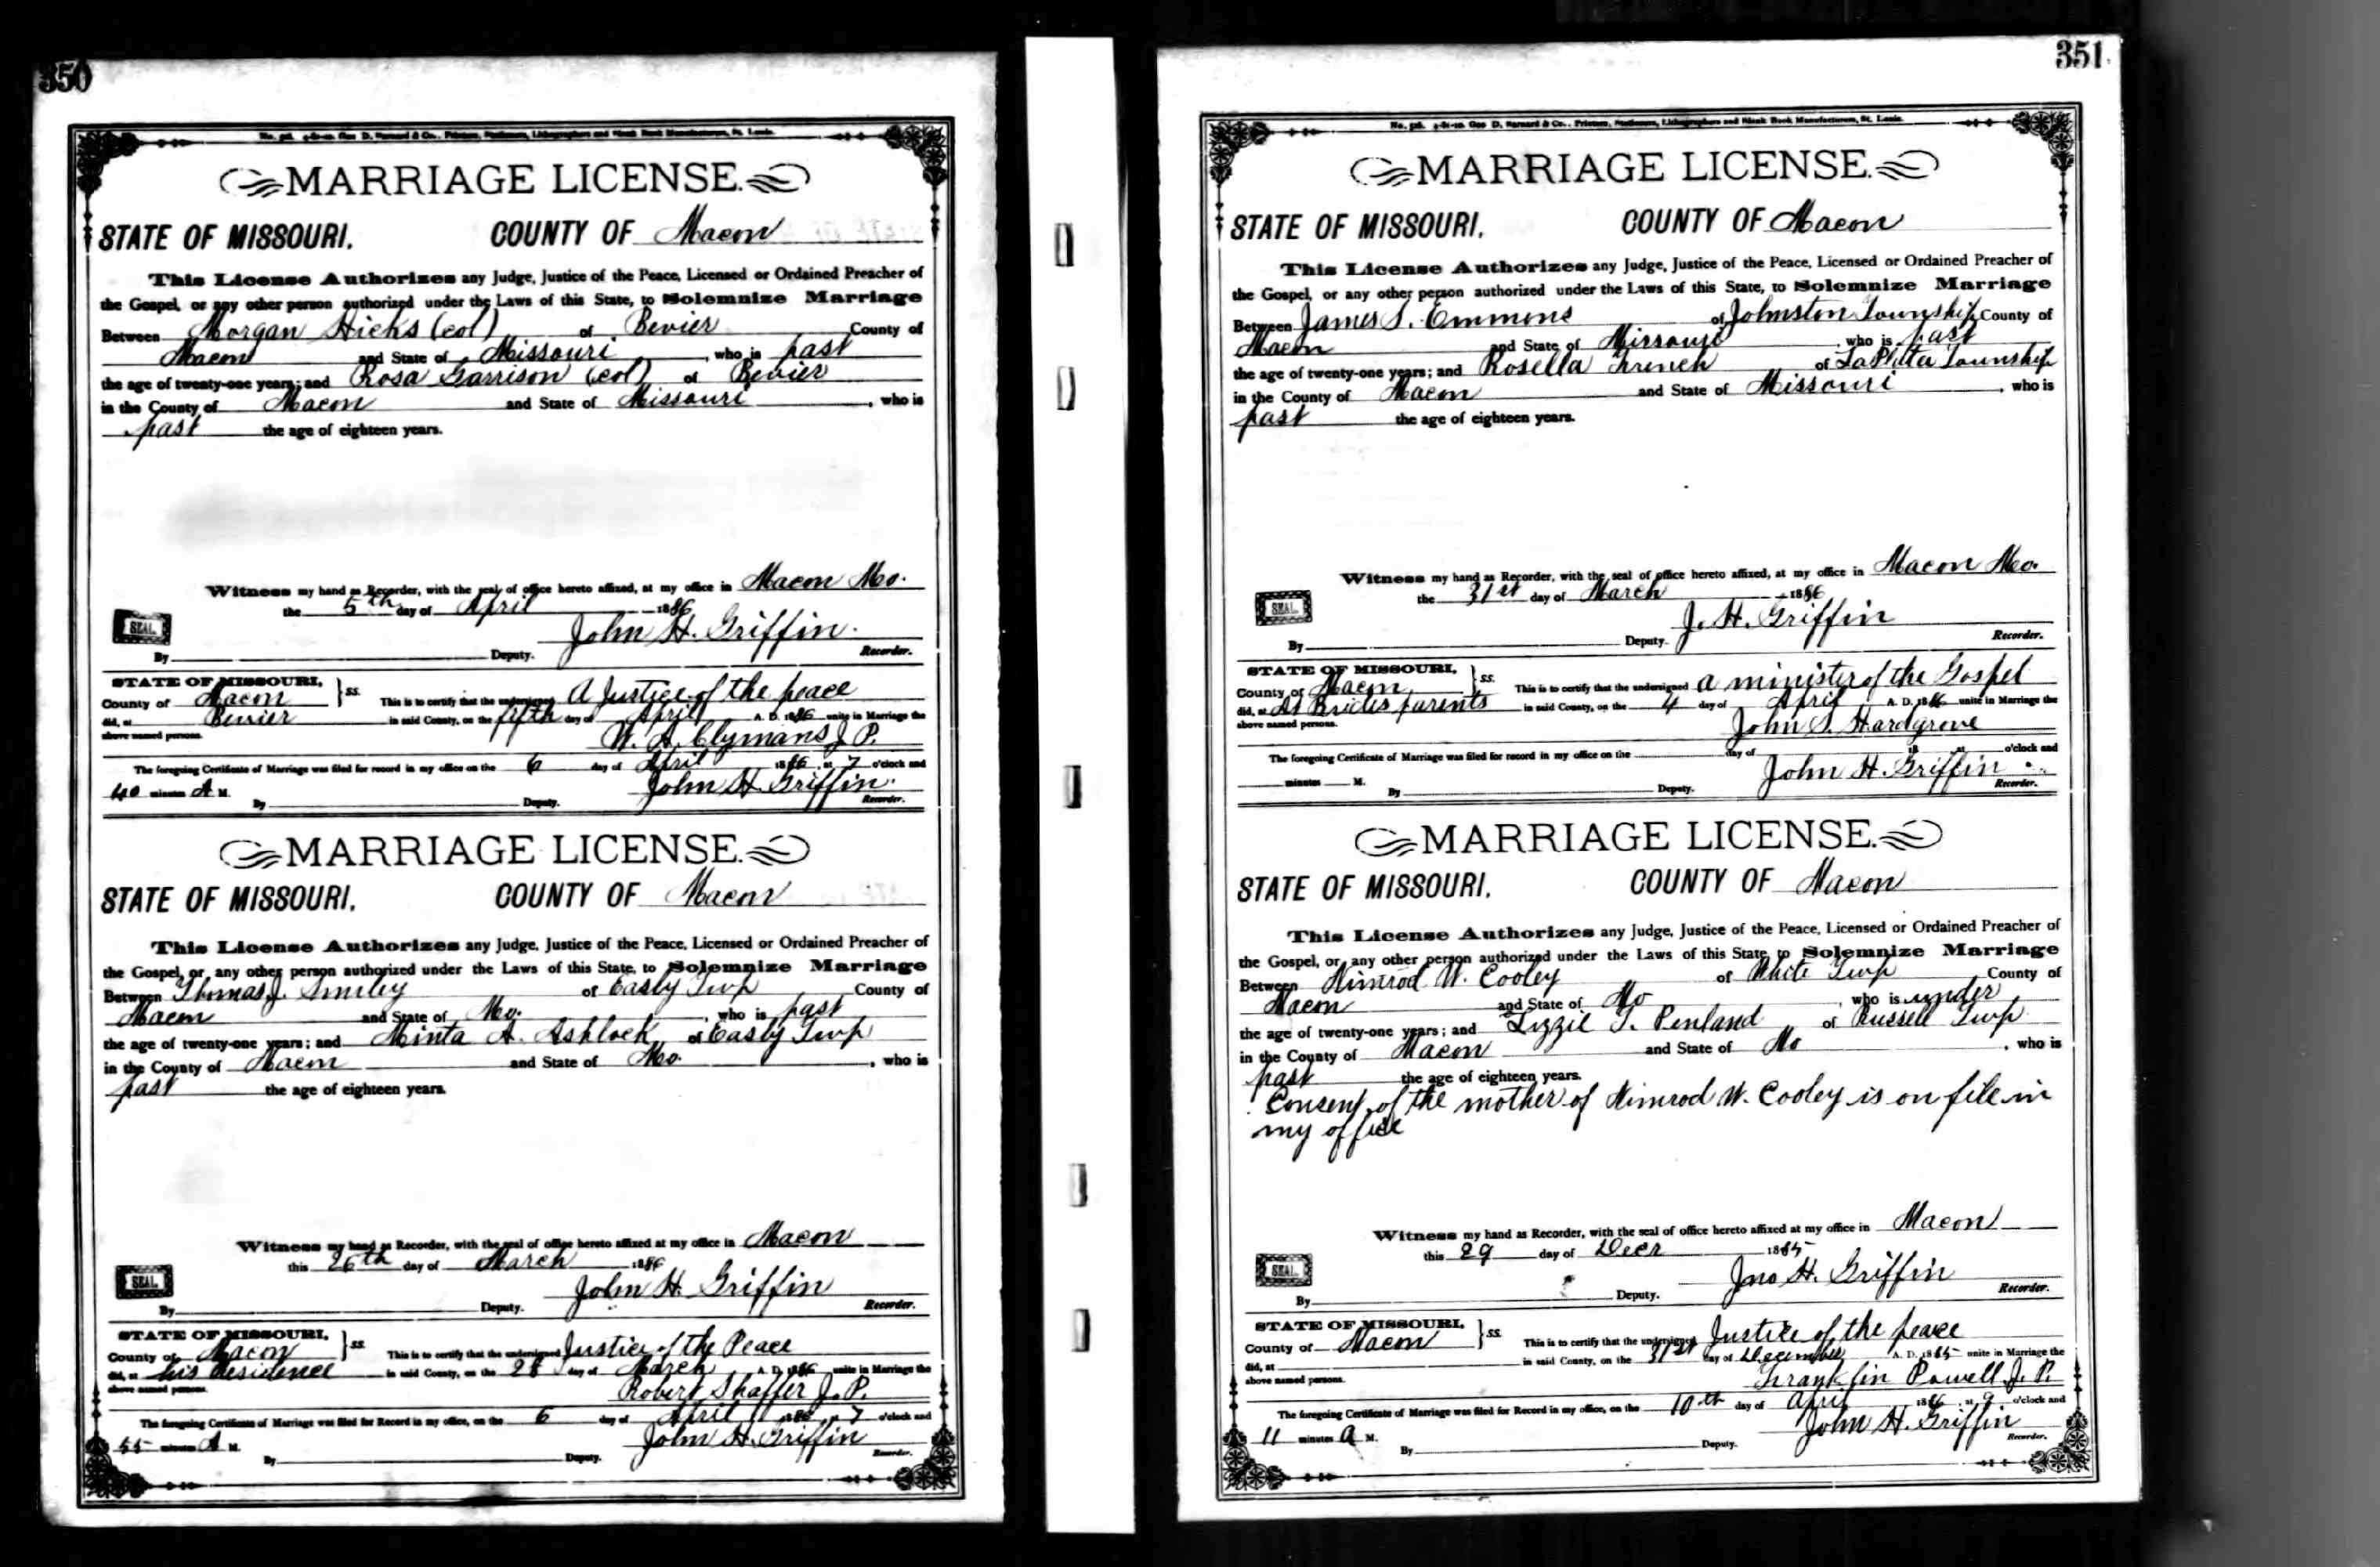 350
No. 316. 4-81-10. Geo D. Barnard & Co., Printers, Stationers, Lithographers and Blank Book Manufacturers, St. Louis.
MARRIAGE LICENSE.
STATE OF MISSOURI. COUNTY OF Macon
This License Authorizes any Judge, Justice of the Peace, Licensed or Ordained Preacher of
the Gospel, or any other person authorized under the Laws of this State, to Solemnize Marriage
Between Morgan Hicks (col) of Bevier County of
Macon and State of Missouri, who is past
the age of twenty-one years; and Rosa Garrison (col) of Bevier
in the County of Macon and State of Missouri, who is
past the age of eighteen years.
Witness my hand as Recorder, with the seal of office hereto affixed, at my office in Macon Mo.
the 5th day of April 1886
SEAL. John H. Griffin.
By Deputy. Recorder.
STATE OF MISSOURI,
County of Macon } ss. This is to certify that the undersigned A Justice of the peace
did, at Bevier in said County, on the fifth day of April A. D. 1886 unite in Marriage the
above named persons. W. A. Clymans J. P.
The foregoing Certificate of Marriage was filed for record in my office on the 6 day of April 1886, at 7 o'clock and
40 minutes A M. John H. Griffin.
By Deputy. Recorder.
MARRIAGE LICENSE.
STATE OF MISSOURI. COUNTY OF Macon
This License Authorizes any Judge, Justice of the Peace, Licensed or Ordained Preacher of
the Gospel, or any other person authorized under the Laws of this State, to Solemnize Marriage
Between Thomas J. Smiley of Easly Twp County of
Macon and State of Mo. , who is past
the age of twenty-one years; and Minta A. Ashlock of Easly Twp
in the County of Macon and State of Mo. , who is
past the age of eighteen years.
Witness my hand as Recorder, with the seal of office hereto affixed at my office in Macon
this 26th day of March 1886
SEAL. John H. Griffin
By Deputy. Recorder.
STATE OF MISSOURI,
County of Macon } ss. This is to certify that the undersigned Justice of the Peace
did, at his residence in said County, on the 28 day of March A. D. 1886 unite in Marriage the
above named persons. Robert Shaffer J. P.
The foregoing Certificate of Marriage was filed for Record in my office, on the 6 day of April 1886, at 7 o'clock and
55 minutes A M. John H. Griffin
By Deputy. Recorder.
351
No. 316. 4-81-10. Geo D. Barnard & Co., Printers, Stationers, Lithographers and Blank Book Manufacturers, St. Louis.
MARRIAGE LICENSE.
STATE OF MISSOURI. COUNTY OF Macon
This License Authorizes any Judge, Justice of the Peace, Licensed or Ordained Preacher of
the Gospel, or any other person authorized under the Laws of this State, to Solemnize Marriage
Between James S. Emmons of Johnston Township County of
Macon and State of Missouri, who is past
the age of twenty-one years; and Rosella French of LaPlata Township
in the County of Macon and State of Missouri, who is
past the age of eighteen years.
Witness my hand as Recorder, with the seal of office hereto affixed, at my office in Macon Mo.
the 31st day of March 1886
SEAL. J. H. Griffin
By Deputy. Recorder.
STATE OF MISSOURI,
County of Macon } ss. This is to certify that the undersigned a minister of the Gospel
did, at At Brides parents in said County, on the 4 day of April A. D. 1886 unite in Marriage the
above named persons. John S. Hardgrove
The foregoing Certificate of Marriage was filed for record in my office on the day of 18 at o'clock and
minutes M. John H. Griffin
By Deputy. Recorder.
MARRIAGE LICENSE.
STATE OF MISSOURI. COUNTY OF Macon
This License Authorizes any Judge, Justice of the Peace, Licensed or Ordained Preacher of
the Gospel, or any other person authorized under the Laws of this State, to Solemnize Marriage
Between Nimrod W. Cooley of White Twp County of
Macon and State of Mo , who is under
the age of twenty-one years; and Lizzie T. Penland of Russell Twp
in the County of Macon and State of Mo , who is
past the age of eighteen years.
Consent of the mother of Nimrod W. Cooley is on file in
my office
Witness my hand as Recorder, with the seal of office hereto affixed at my office in Macon
this 29 day of Decr 1885
SEAL. Jno H. Griffin
By Deputy. Recorder.
STATE OF MISSOURI,
County of Macon } ss. This is to certify that the undersigned Justice of the peace
did, at in said County, on the 31st day of December A. D. 1885 unite in Marriage the
above named persons. Franklin Powell J. P.
The foregoing Certificate of Marriage was filed for Record in my office, on the 10th day of April 1886, at 9 o'clock and
11 minutes A M. John H. Griffin
By Deputy. Recorder.